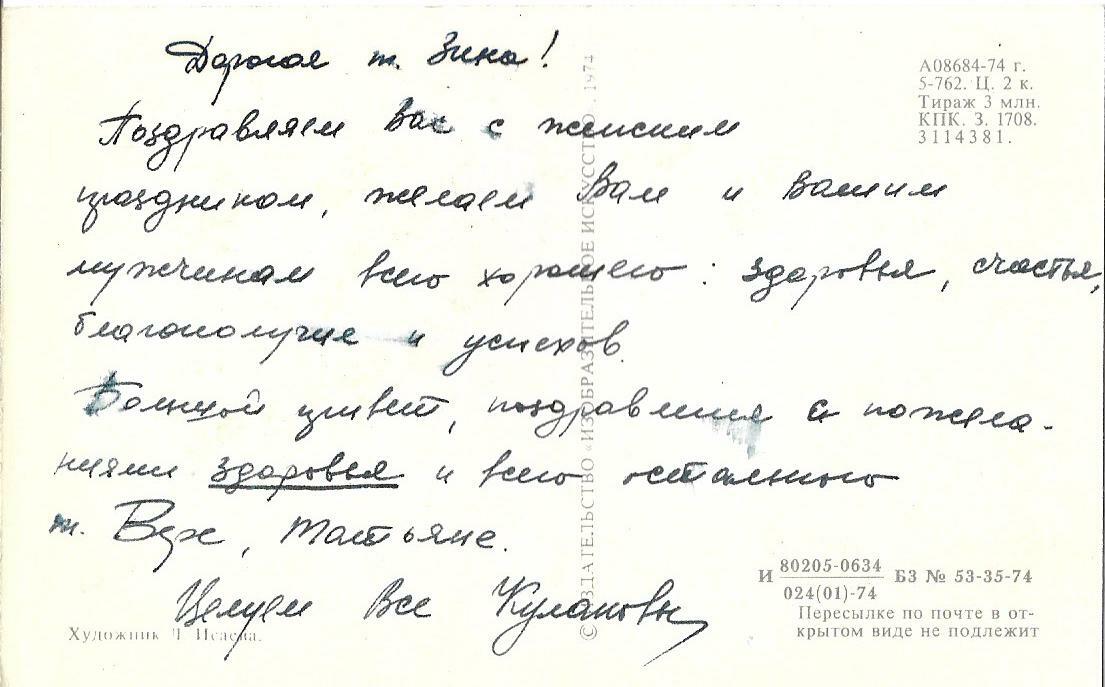 Дорогая т. Зина!
Поздравляем Вас с женским
праздником, желаем Вам и Вашим
мужчинам всего хорошего: здоровья, счастья,
благополучие и успехов.
Большой привет, поздравления с пожела-
ниями здоровья и всего остального
т. Вере, Татьяне.
Целуем Все Кулаковы
Художник Л. Исаева.
© ИЗДАТЕЛЬСТВО «ИЗОБРАЗИТЕЛЬНОЕ ИСКУССТВО». 1974
А08684-74 г.
5-762. Ц. 2 к.
Тираж 3 млн.
КПК. З. 1708.
3114381.
И 80205-0634 БЗ № 53-35-74
024(01)-74
Пересылке по почте в от-
крытом виде не подлежит